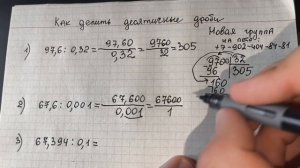 Как делить десятичные дроби
Новая группа
на лето
+7-902-404-84-81
1) 97,6 : 0,32 = 97,60/0,32 = 9760/32 = 305
9760 32
96 305
160
160
2) 67,6 : 0,001 = 67,600/0,001 = 67600/1
3) 67,394 : 0,1 =